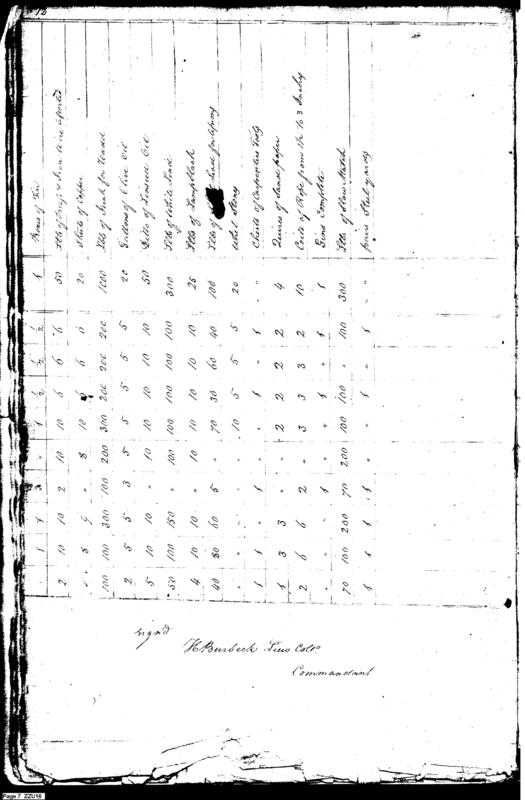 12
" 1 1 3 " 1 ½ ½ ½ 1 Boxes of Tin
2 10 10 2 10 10 6 6 6 50 Lbs of & Iron wire assorted
" 8 9 " 8 10 6 6 6 20 Sheets of Copper
100 100 300 100 200 300 200 200 200 1000 Lbs of Junk for Wads
2 5 5 3 5 5 5 5 5 20 Gallons of Olive Oil
5 10 10 " 10 10 10 10 10 50 Do of Linseed Oil
50 100 150 " 100 100 100 100 100 300 Lbs of White Lead
4 10 10 " 10 10 10 10 10 25 Lbs of Lampblack
40 80 60 5 " 70 30 60 40 100 Lbs of Lead for Aprons
" " " " " 10 5 5 5 20 Whet Stones
1 1 " 1 " " 1 " 1 " Chests of Carpenters Tools
1 3 3 " " 2 2 2 2 4 Quires of Sand paper
2 6 6 2 " 3 3 3 2 10 Coils of Rope from 1½ to 3 Inches
" " " 1 " " 1 " 1 1 Gins Complete
70 100 200 70 200 100 100 " 100 300 Lbs of Slow Match
1 1 1 1 " " 1 " 1 " pairs Steelyards
signd
H Burbeck Lieu Colo
Commandant
Page 7 ZZU16